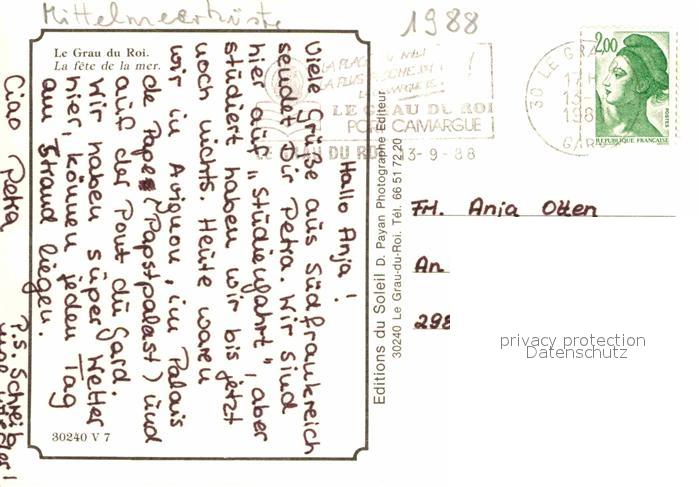 Mittelmeerküste
1988
Le Grau du Roi.
La fête de la mer.
Hallo Anja!
Viele Grüße aus Südfrankreich
sendet Dir Petra. Wir sind
hier auf "Studienfahrt", aber
studiert haben wir bis jetzt
noch nichts. Heute waren
wir in Avignon, im Palais
de Pape (Papstpalast) und
auf der Pont du Gard.
Wir haben super Wetter
hier, können jeden Tag
am Strand liegen.
Ciao Petra
P.S. Schreib
mal wieder!
30240 V 7
Editions du Soleil D. Payan Photographe Editeur
30240 Le Grau-du-Roi. Tél. 66 51 72 20
LA PLAGE
LA PLUS PROCHE
LE GRAU DU ROI
PORT CAMARGUE
LE GRAU DU ROI 13-9-88
30 LE GRAU
13-
198
GARD
2,00
POSTES
REPUBLIQUE FRANÇAISE
Frl. Anja Otten
An
298
privacy protection
Datenschutz